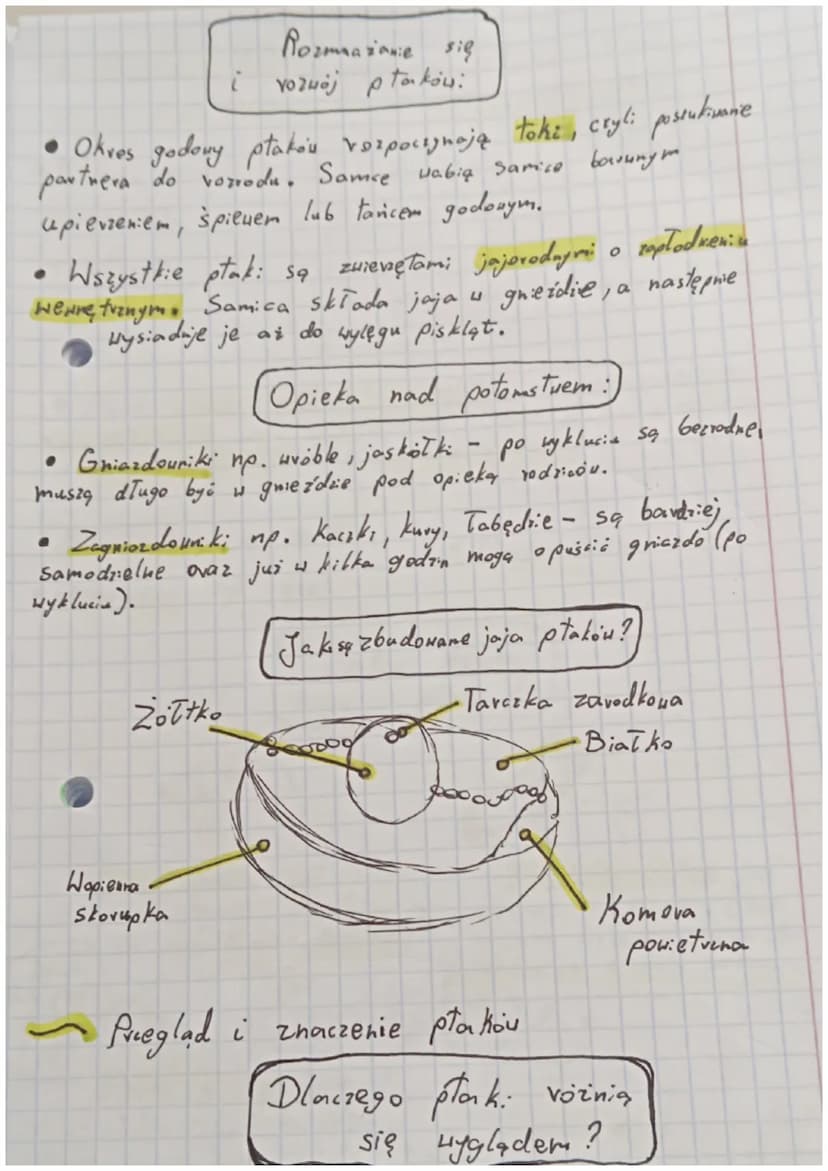 Rozmnażanie się
i rozwój ptaków:
• Okres godowy ptaków rozpoczynają toki, czyli poszukiwanie
partnera do rozrodu. Samce wabią samice barwnym
upierzeniem, śpiewem lub tańcem godowym.
• Wszystkie ptaki są zwierzętami jajorodnymi o zapłodnieniu
wewnętrznym. Samica składa jaja w gnieździe, a następnie
wysiaduje je aż do wylęgu piskląt.
Opieka nad potomstwem:
• Gniazdowniki np. wróble, jaskółki - po wykluciu są bezradne,
muszą długo być w gnieździe pod opieką rodziców.
• Zagniazdowniki np. kaczki, kury, łabędzie - są bardziej
samodzielne oraz już w kilka godzin mogą opuścić gniazdo (po
wykluciu).
Jak są zbudowane jaja ptaków?
Żółtko
Tarczka zarodkowa
Białko
Wapienna
skorupka
Komora
powietrzna
~ Przegląd i znaczenie ptaków
Dlaczego ptaki różnią
się wyglądem?